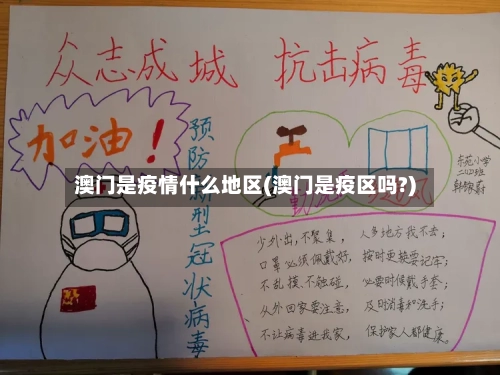 众志成城 抗击病毒
加油!
预防新型冠状病毒
澳门是疫情什么地区(澳门是疫区吗?)
勤 通风
东苑小学
二(4)班
少外出,不聚集, 人多地方我不去;
口罩必须佩戴好, 按时更换要记牢;
不乱摸、不触碰, 必要时候戴手套;
从外回家要注意, 及时消毒和洗手;
不让病毒进我家, 保护家人都健康。